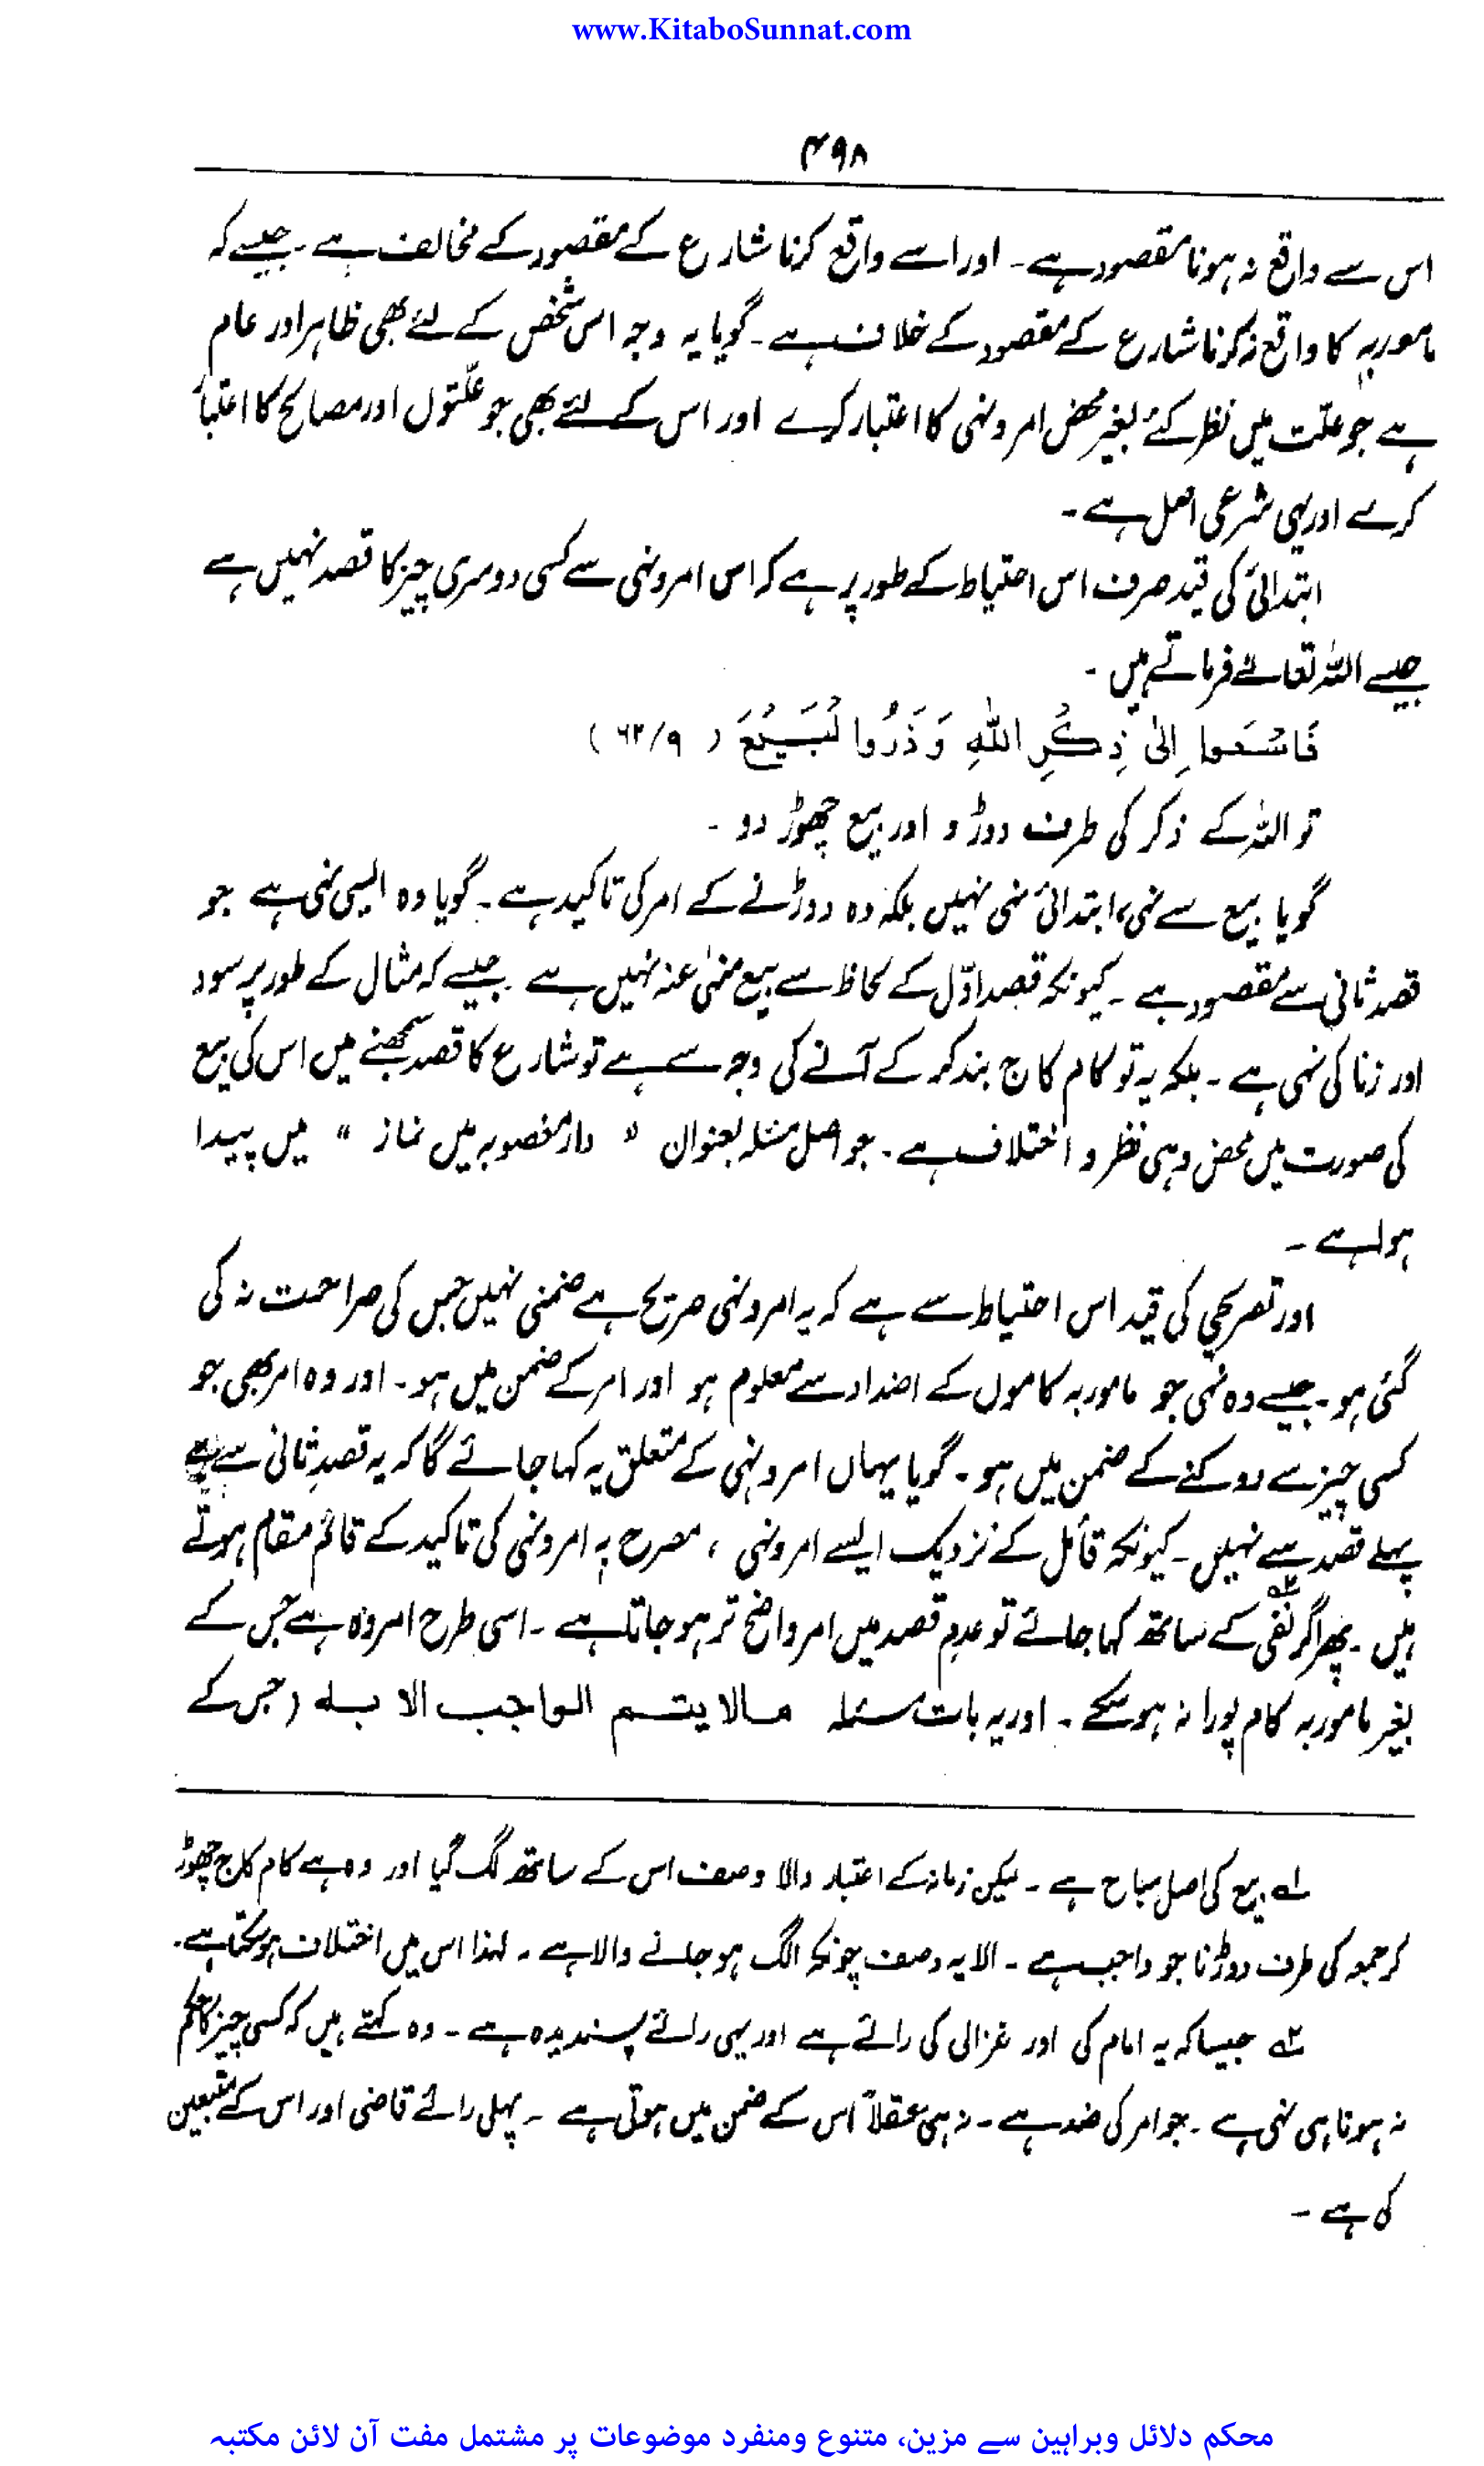 www.KitaboSunnat.com
۴۹۸
اس سے واقع نہ ہونا مقصود ہے۔ اور اسے واقع کرنا شارع کے مقصود کے مخالف ہے۔ جیسے کہ
مامور بہٖ کا واقع نہ کرنا شارع کے مقصود کے خلاف ہے۔ گویا یہ وجہ اس شخص کے لئے بھی ظاہر اور عام
ہے جو علّت میں نظر کئے بغیر محض امر و نہی کا اعتبار کرے اور اس کے لئے بھی جو علّتوں اور مصالح کا اعتبا
کرے اور یہی شرعی اصل ہے۔
ابتدائی کی قید صرف اس احتیاط کے طور پر ہے کہ اس امر و نہی سے کسی دوسری چیز کا قصد نہیں ہے
جیسے اللہ تعالےٰ فرماتے ہیں۔
فَاسْعَوا اِلیٰ ذِکْرِ اللّٰهِ وَذَرُوا لْبَیْعَ (۶۲/۹)
تو اللہ کے ذکر کی طرف دوڑو اور بیع چھوڑ دو ۔
گویا بیع سے نہی، ابتدائی نہی نہیں بلکہ وہ دوڑنے کے امر کی تاکید ہے۔ گویا وہ ایسی نہی ہے جو
قصد ثانی سے مقصود ہے۔ کیونکہ قصد اوّل کے لحاظ سے بیع منہیٰ عنہ نہیں ہے جیسے کہ مثال کے طور پر سود
اور زنا کی نہی ہے۔ بلکہ یہ تو کام کاج بند کر کے آنے کی وجہ سے ہے تو شارع کا قصد سمجھنے میں اس کی بیع
کی صورت میں محض وہی نظر و اختلاف ہے۔ جو اصل مسئلہ بعنوان " دار مغصوبہ میں نماز " میں پیدا
ہوا ہے ۔
اور تصریحی کی قید اس احتیاط سے ہے کہ یہ امر و نہی صریح ہے ضمنی نہیں جس کی صراحت نہ کی
گئی ہو۔ جیسے وہ نہی جو مامور بہ کاموں کے اضداد سے معلوم ہو اور امر کے ضمن میں ہو۔ اور وہ امر بھی جو
کسی چیز سے روکنے کے ضمن میں ہو۔ گویا یہاں امر و نہی کے متعلق یہ کہا جائے گا کہ یہ قصدِ ثانی سے ہے
پہلے قصد سے نہیں۔ کیونکہ قائل کے نزدیک ایسے امر و نہی ، مصرح بہ امر و نہی کی تاکید کے قائم مقام ہوتے
ہیں۔ پھر اگر نفی۲ کے ساتھ کہا جائے تو عدمِ قصد میں امر واضح تر ہو جاتا ہے۔ اسی طرح امر وہ ہے جس کے
بغیر مامور بہ کام پورا نہ ہو سکے۔ اور یہ بات مسئلہ مالا یتم الواجب الا بہ (جس کے
۱ بیع کی اصل مباح ہے۔ لیکن زمانہ کے اعتبار والا وصف اس کے ساتھ لگ گیا اور وہ ہے کام کاج چھوڑ
کر جمعہ کی طرف دوڑنا جو واجب ہے۔ الا یہ وصف چونکہ الگ ہو جانے والا ہے۔ لہذا اس میں اختلاف ہو سکتا ہے۔
۲ جیسا کہ یہ امام کی اور غزالی کی رائے ہے اور یہی رائے پسندیدہ ہے۔ وہ کہتے ہیں کہ کسی چیز کا حکم
نہ ہونا ہی نہی ہے۔ جو امر کی ضد ہے۔ نہ ہی عقلاً اس کے ضمن میں ہوتی ہے۔ پہلی رائے قاضی اور اس کے متبعین
کی ہے ۔
محکم دلائل وبراہین سے مزین، متنوع ومنفرد موضوعات پر مشتمل مفت آن لائن مکتبہ